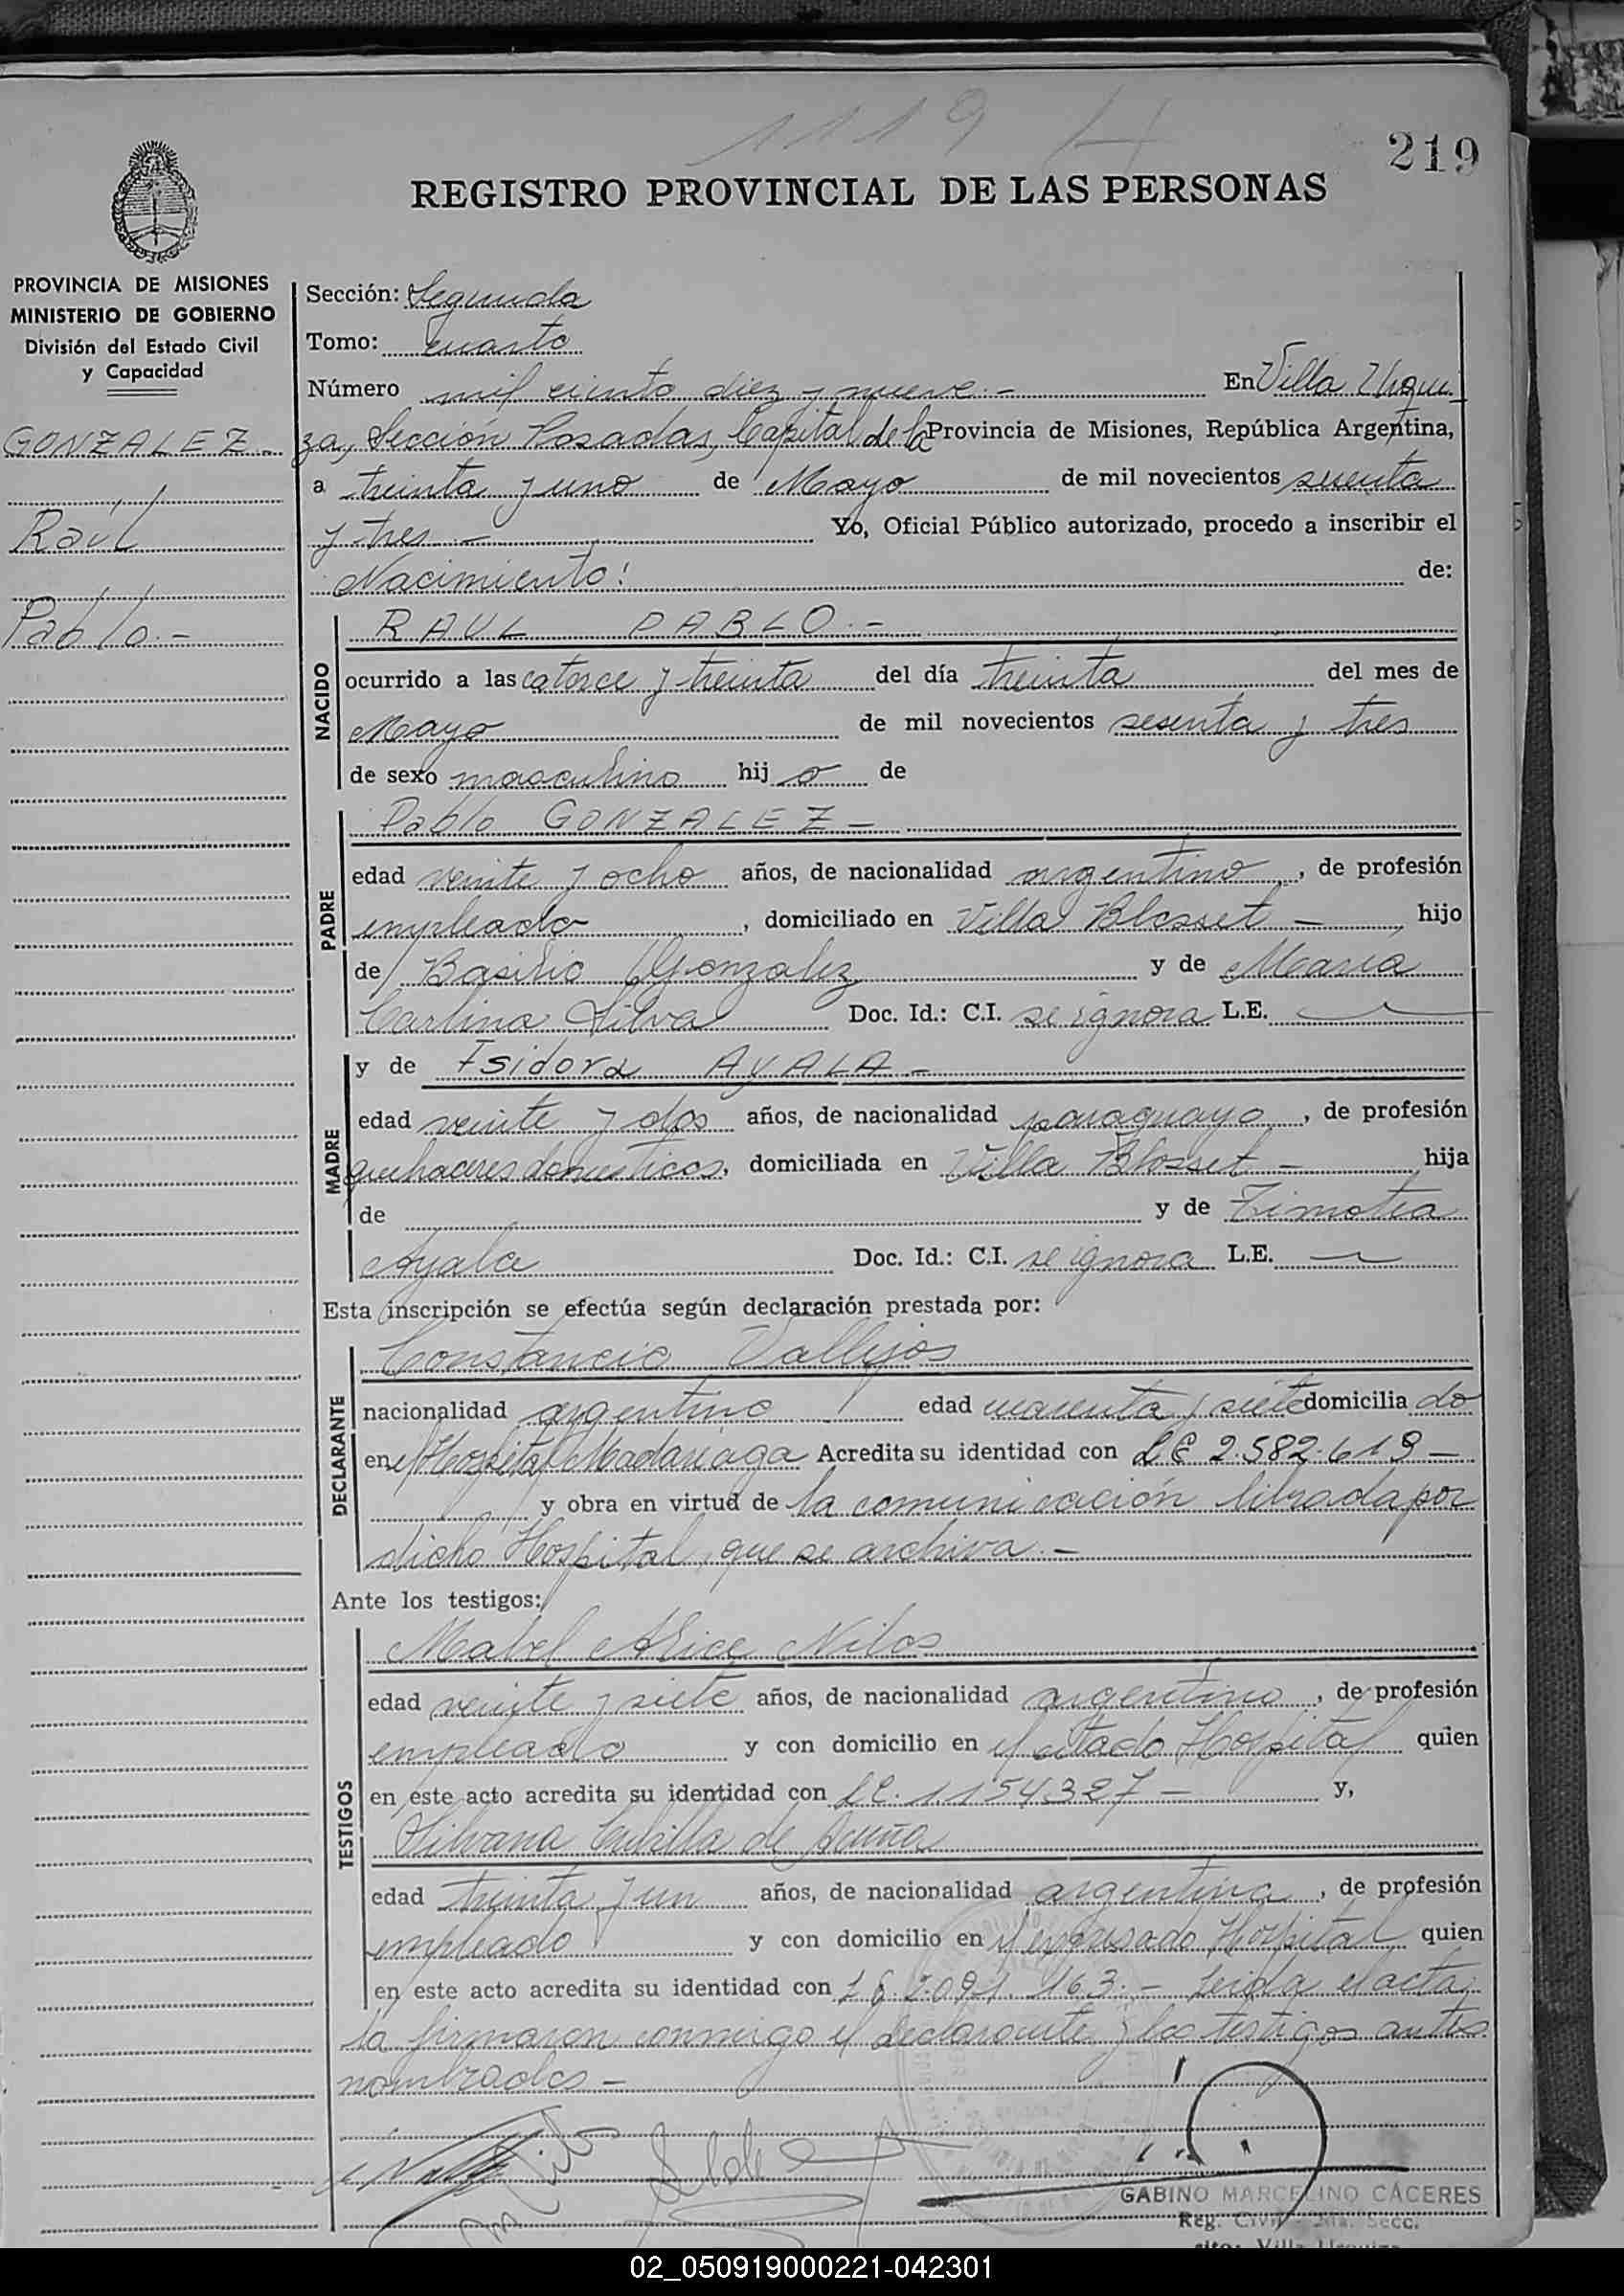 1119 H
219
REGISTRO PROVINCIAL DE LAS PERSONAS
PROVINCIA DE MISIONES
MINISTERIO DE GOBIERNO
División del Estado Civil
y Capacidad
GONZALEZ -
Raúl
Pablo.-
Sección: Segunda
Tomo: cuarto
Número mil ciento diez y nueve.- En Villa Urqui
za, Sección Posadas, Capital de la Provincia de Misiones, República Argentina,
a treinta y uno de Mayo de mil novecientos sesenta
y tres.- Yo, Oficial Público autorizado, procedo a inscribir el
Nacimiento: de:
NACIDO
RAUL PABLO.-
ocurrido a las catorce y treinta del día treinta del mes de
Mayo de mil novecientos sesenta y tres
de sexo masculino hij o de
PADRE
Pablo GONZALEZ -
edad veinte y ocho años, de nacionalidad argentino, de profesión
empleado, domiciliado en Villa Blosset - hijo
de Basilio Gonzalez y de María
Carlina Silva Doc. Id.: C.I. se ignora L.E.
MADRE
y de Isidora AYALA -
edad veinte y dos años, de nacionalidad paraguayo, de profesión
quehaceres domesticos, domiciliada en Villa Blosset - hija
de y de Timotea
Ayala Doc. Id.: C.I. se ignora L.E.
Esta inscripción se efectúa según declaración prestada por:
DECLARANTE
Constancio Vallejos
nacionalidad argentino edad cuarenta y siete domicilia do
en el Hospital Madariaga Acredita su identidad con LE 2.582.619 -
y obra en virtud de la comunicación librada por
dicho Hospital, que se archiva.-
Ante los testigos:
TESTIGOS
Mabel Alice Nilos
edad veinte y siete años, de nacionalidad argentino, de profesión
empleado y con domicilio en el citado Hospital quien
en este acto acredita su identidad con LC. 1154327 - y,
Silvana Cubilla de Acuña
edad treinta y un años, de nacionalidad argentina, de profesión
empleado y con domicilio en el expresado Hospital quien
en este acto acredita su identidad con 2.091.163.- Leida el acta,
la firmaron conmigo el declarante y los testigos antes
nombrados -
GABINO MARCELINO CACERES
Reg. Civil Secc.
02_050919000221-042301